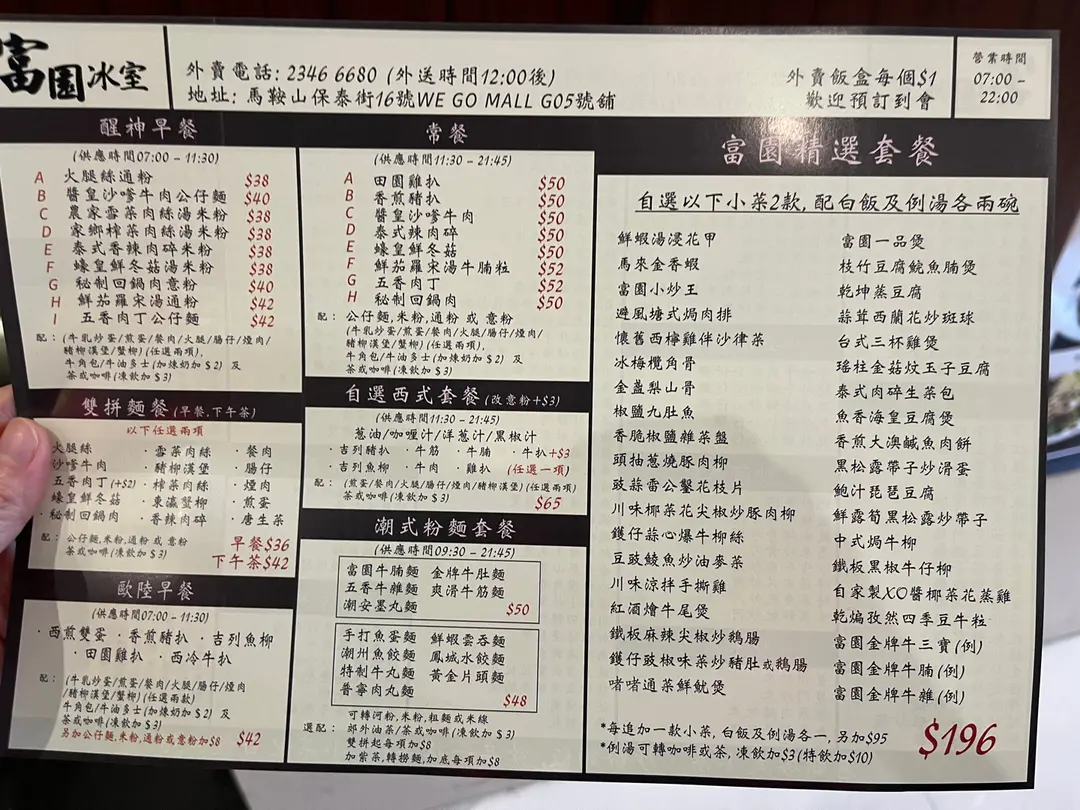 富園冰室
外賣電話: 2346 6680 (外送時間12:00後)
地址: 馬鞍山保泰街16號WE GO MALL G05號舖
外賣飯盒每個$1
歡迎預訂到會
營業時間
07:00 –
22:00
醒神早餐
(供應時間07:00 – 11:30)
A 火腿絲通粉 $38
B 醬皇沙嗲牛肉公仔麵 $40
C 農家雪菜肉絲湯米粉 $38
D 家鄉榨菜肉絲湯米粉 $38
E 泰式香辣肉碎米粉 $38
F 蠔皇鮮冬菇湯米粉 $38
G 秘制回鍋肉意粉 $40
H 鮮茄羅宋湯通粉 $42
I 五香肉丁公仔麵 $42
配: (牛乳炒蛋/煎蛋/餐肉/火腿/腸仔/煙肉/
豬柳漢堡/蟹柳)(任選兩項),
牛角包/牛油多士(加煉奶加$2) 及
茶或咖啡(凍飲加$3)
雙拼麵餐 (早餐,下午茶)
以下任選兩項
火腿絲 ·雪菜肉絲 ·餐肉
沙嗲牛肉 ·豬柳漢堡 ·腸仔
五香肉丁(+$2) ·榨菜肉絲 ·煙肉
·蠔皇鮮冬菇 ·東瀛蟹柳 ·煎蛋
·秘制回鍋肉 ·香辣肉碎 ·唐生菜
配: 公仔麵,米粉,通粉 或 意粉
茶或咖啡(凍飲加$3)
早餐$36
下午茶$42
歐陸早餐
(供應時間07:00 – 11:30)
·西煎雙蛋 ·香煎豬扒 ·吉列魚柳
·田園雞扒 ·西冷牛扒
配: (牛乳炒蛋/煎蛋/餐肉/火腿/腸仔/煙肉
/豬柳漢堡/蟹柳)(任選兩款)
牛角包/牛油多士(加煉奶加$2) 及
茶或咖啡(凍飲加$3)
另加公仔麵,米粉,通粉或意粉加$8 $42
常餐
(供應時間11:30 – 21:45)
A 田園雞扒 $50
B 香煎豬扒 $50
C 醬皇沙嗲牛肉 $50
D 泰式辣肉碎 $50
E 蠔皇鮮冬菇 $50
F 鮮茄羅宋湯牛腩粒 $52
G 五香肉丁 $52
H 秘制回鍋肉 $50
配: 公仔麵,米粉,通粉 或 意粉
(牛乳炒蛋/煎蛋/餐肉/火腿/腸仔/煙肉/
豬柳漢堡/蟹柳)(任選兩項),
牛角包/牛油多士(加煉奶加$2) 及
茶或咖啡(凍飲加$3)
自選西式套餐 (改意粉+$3)
(供應時間11:30 – 21:45)
蔥油/咖喱汁/洋蔥汁/黑椒汁
·吉列豬扒 ·牛筋 ·牛腩 ·牛扒+$3
·吉列魚柳 ·牛肉 ·雞扒 (任選一項)
配: (煎蛋/餐肉/火腿/腸仔/煙肉/豬柳漢堡)(任選兩項)
茶或咖啡(凍飲加$3)
$65
潮式粉麵套餐
(供應時間09:30 – 21:45)
富園牛腩麵 金牌牛肚麵
五香牛雜麵 爽滑牛筋麵
潮安墨丸麵 $50
手打魚蛋麵 鮮蝦雲吞麵
潮州魚餃麵 鳳城水餃麵
特制牛丸麵 黃金片頭麵
普寧肉丸麵 $48
可轉河粉,米粉,粗麵或米線
選配: 郊外油菜/茶或咖啡(凍飲加$3)
雙拼起每項加$8
加紫菜,轉撈麵,加底每項加$8
富園精選套餐
自選以下小菜2款,配白飯及例湯各兩碗
鮮蝦湯浸花甲
馬來金香蝦
富園小炒王
避風塘式焗肉排
懷舊西檸雞伴沙律菜
冰梅欖角骨
金盞梨山骨
椒鹽九肚魚
香脆椒鹽雜菜盤
頭抽蔥燒豚肉柳
豉蒜雷公鑿花枝片
川味椰菜花尖椒炒豚肉柳
鑊仔蒜心爆牛柳絲
豆豉鯪魚炒油麥菜
川味涼拌手撕雞
紅酒燴牛尾煲
鐵板麻辣尖椒炒鵝腸
鑊仔豉椒味菜炒豬肚或鵝腸
啫啫通菜鮮魷煲
富園一品煲
枝竹豆腐鯇魚腩煲
乾坤蒸豆腐
蒜茸西蘭花炒斑球
台式三杯雞煲
瑤柱金菇炆玉子豆腐
泰式肉碎生菜包
魚香海皇豆腐煲
香煎大澳鹹魚肉餅
黑松露帶子炒滑蛋
鮑汁琵琶豆腐
鮮露筍黑松露炒帶子
中式焗牛柳
鐵板黑椒牛仔柳
自家製XO醬椰菜花蒸雞
乾煸孜然四季豆牛粒
富園金牌牛三寶(例)
富園金牌牛腩(例)
富園金牌牛雜(例)
*每追加一款小菜, 白飯及例湯各一, 另加$95
*例湯可轉咖啡或茶, 凍飲加$3(特飲加$10)
$196